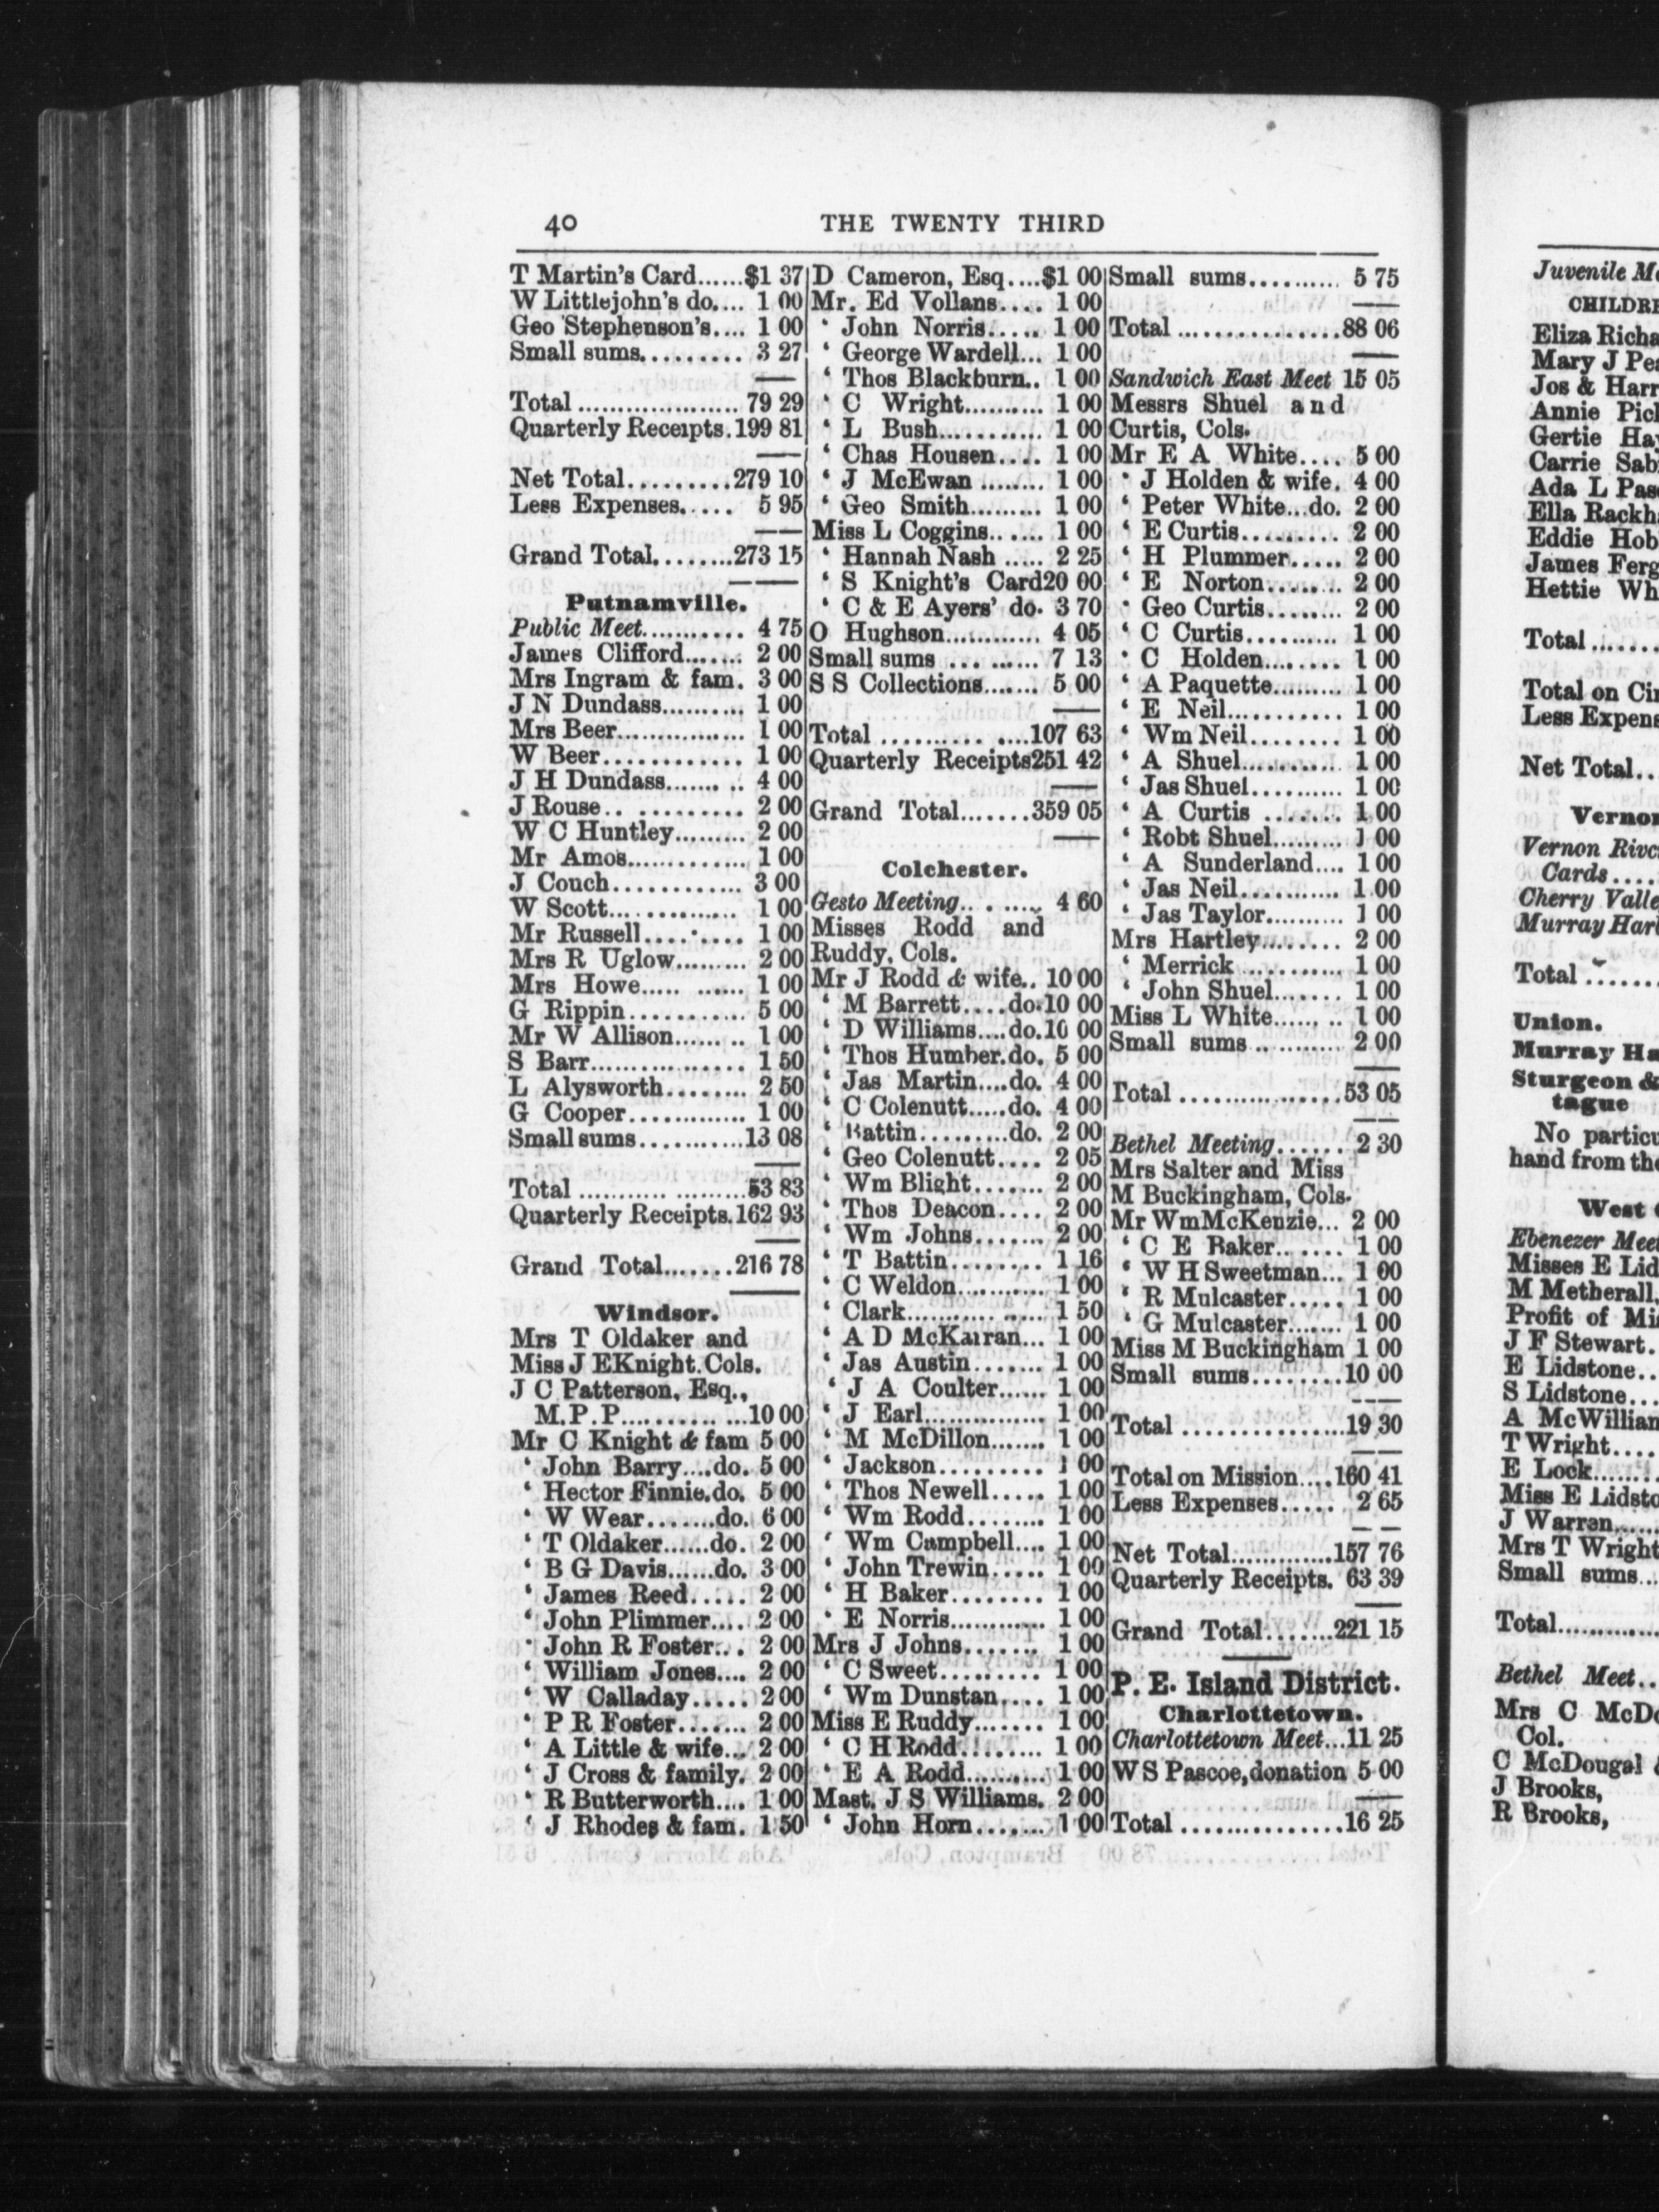 40 THE TWENTY THIRD
T Martin's Card......$1 37
W Littlejohn's do.... 1 00
Geo Stephenson's.... 1 00
Small sums......... 3 27
Total .................... 79 29
Quarterly Receipts.199 81
Net Total..........279 10
Less Expenses..... 5 95
Grand Total........273 15
Putnamville.
Public Meet........... 4 75
James Clifford....... 2 00
Mrs Ingram & fam. 3 00
J N Dundass.......... 1 00
Mrs Beer............... 1 00
W Beer............ 1 00
J H Dundass....... .. 4 00
J Rouse.. .......... 2 00
W C Huntley......... 2 00
Mr Amos............. 1 00
J Couch............ 3 00
W Scott............. 1 00
Mr Russell......... 1 00
Mrs R Uglow......... 2 00
Mrs Howe..... ...... 1 00
G Rippin........... 5 00
Mr W Allison....... .. 1 00
S Barr................. 1 50
L Alysworth........ 2 50
G Cooper............. 1 00
Small sums...........13 08
Total ........... .........53 83
Quarterly Receipts.162 93
Grand Total.......216 78
Windsor.
Mrs T Oldaker and
Miss J E Knight. Cols.
J C Patterson, Esq.,
M.P.P.............10 00
Mr C Knight & fam 5 00
' John Barry....do. 5 00
' Hector Finnie.do. 5 00
' W Wear........do. 6 00
' T Oldaker......do. 2 00
' B G Davis......do. 3 00
' James Reed..... 2 00
' John Plimmer.... 2 00
' John R Foster... 2 00
' William Jones.... 2 00
' W Calladay..... 2 00
' P R Foster....... 2 00
' A Little & wife... 2 00
' J Cross & family. 2 00
' R Butterworth.... 1 00
' J Rhodes & fam. 1 50
D Cameron, Esq....$1 00
Mr. Ed Vollans.... 1 00
' John Norris..... 1 00
' George Wardell... 1 00
' Thos Blackburn.. 1 00
' C Wright.......... 1 00
' L Bush............ 1 00
' Chas Housen.... 1 00
' J McEwan ........ 1 00
' Geo Smith......... 1 00
Miss L Coggins...... 1 00
' Hannah Nash ..... 2 25
' S Knight's Card20 00
' C & E Ayers' do. 3 70
O Hughson............ 4 05
Small sums ... ...... 7 13
S S Collections....... 5 00
Total .......... ....107 63
Quarterly Receipts251 42
Grand Total.......359 05
Colchester.
Gesto Meeting.. ...... 4 60
Misses Rodd and
Ruddy, Cols.
Mr J Rodd & wife.. 10 00
' M Barrett....do.10 00
' D Williams....do.10 00
' Thos Humber.do. 5 00
' Jas Martin....do. 4 00
' C Colenutt.....do. 4 00
' Battin.........do. 2 00
' Geo Colenutt.... 2 05
' Wm Blight....... 2 00
' Thos Deacon.... 2 00
' Wm Johns....... 2 00
' T Battin......... 1 16
' C Weldon........... 1 00
' Clark........... ..... 1 50
' A D McKairan... 1 00
' Jas Austin....... 1 00
' J A Coulter...... 1 00
' J Earl............... 1 00
' M McDillon....... 1 00
' Jackson.......... 1 00
' Thos Newell..... 1 00
' Wm Rodd........ 1 00
' Wm Campbell.... 1 00
' John Trewin..... 1 00
' H Baker......... 1 00
' E Norris............ 1 00
Mrs J Johns........ 1 00
' C Sweet.......... 1 00
' Wm Dunstan.... 1 00
Miss E Ruddy....... 1 00
' C H Rodd........ 1 00
' E A Rodd.......... 1 00
Mast. J S Williams. 2 00
' John Horn....... 1 00
Small sums.......... 5 75
Total ................88 06
Sandwich East Meet 15 05
Messrs Shuel and
Curtis, Cols.
Mr E A White.... 5 00
' J Holden & wife. 4 00
' Peter White...do. 2 00
' E Curtis.......... 2 00
' H Plummer..... 2 00
' E Norton........ 2 00
' Geo Curtis........ 2 00
' C Curtis.......... 1 00
' C Holden........ 1 00
' A Paquette......... 1 00
' E Neil........... 1 00
' Wm Neil......... 1 00
' A Shuel.......... 1 00
' Jas Shuel.......... 1 00
' A Curtis ........ 1 00
' Robt Shuel.......... 1 00
' A Sunderland.... 1 00
' Jas Neil........... 1 00
' Jas Taylor.......... 1 00
Mrs Hartley........ 2 00
' Merrick ........... 1 00
' John Shuel....... 1 00
Miss L White....... 1 00
Small sums .. ........ 2 00
Total ................53 05
Bethel Meeting...... 2 30
Mrs Salter and Miss
M Buckingham, Cols.
Mr Wm McKenzie... 2 00
' C E Baker....... 1 00
' W H Sweetman... 1 00
' R Mulcaster..... 1 00
' G Mulcaster....... 1 00
Miss M Buckingham 1 00
Small sums........10 00
Total ................19 30
Total on Mission....160 41
Less Expenses..... 2 65
Net Total.............157 76
Quarterly Receipts. 63 39
Grand Total.......221 15
P. E. Island District.
Charlottetown.
Charlottetown Meet...11 25
W S Pascoe, donation 5 00
Total ................16 25
Juvenile M
CHILDRE
Eliza Richa
Mary J Pea
Jos & Harr
Annie Picl
Gertie Hay
Carrie Sab
Ada L Pas
Ella Rackh
Eddie Hob
James Ferg
Hettie Wh
Total.......
Total on Cir
Less Expens
Net Total..
Vernon
Vernon Rive
Cards....
Cherry Valle
Murray Harl
Total .......
Union.
Murray Ha
Sturgeon &
tague
No particu
hand from the
West
Ebenezer Meet
Misses E Lid
M Metherall,
Profit of Mis
J F Stewart.
E Lidstone..
S Lidstone...
A McWillian
T Wright....
E Lock.......
Miss E Lidsto
J Warren......
Mrs T Wright
Small sums...
Total.............
Bethel Meet..
Mrs C McDo
Col.
C McDougal &
J Brooks,
R Brooks,